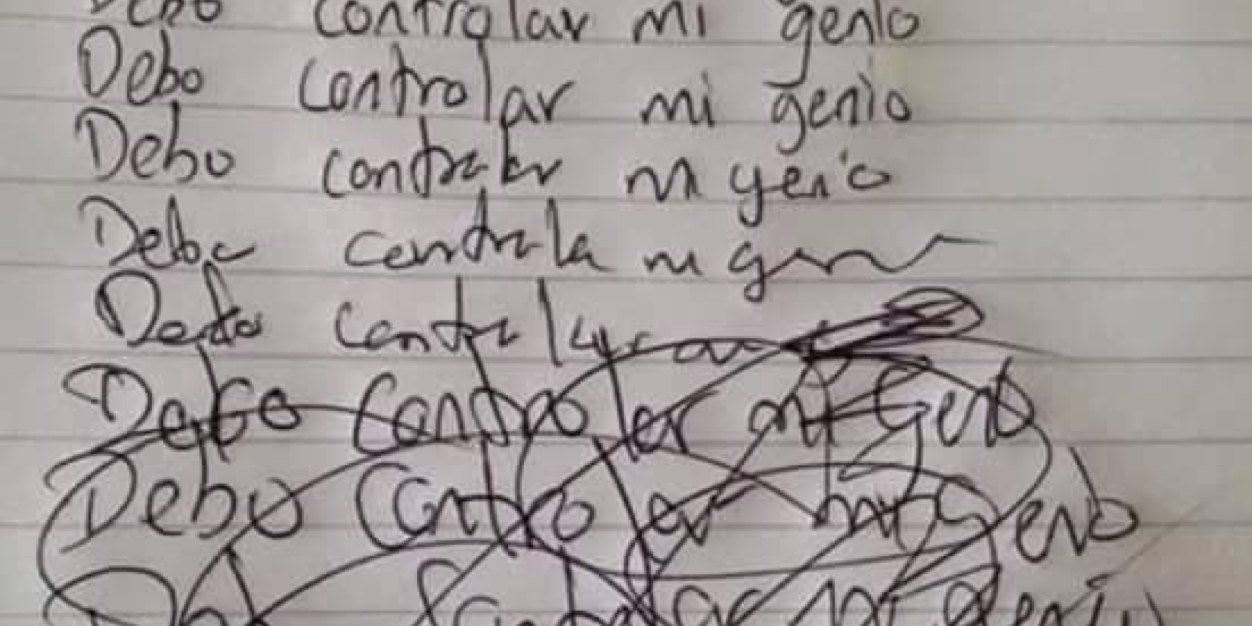 Debo controlar mi genio
Debo controlar mi genio
Debo controlar mi genio
Debo contrala mi
contra
Debo controler mi Genio
Debo controler mi genio
controlar mi genio